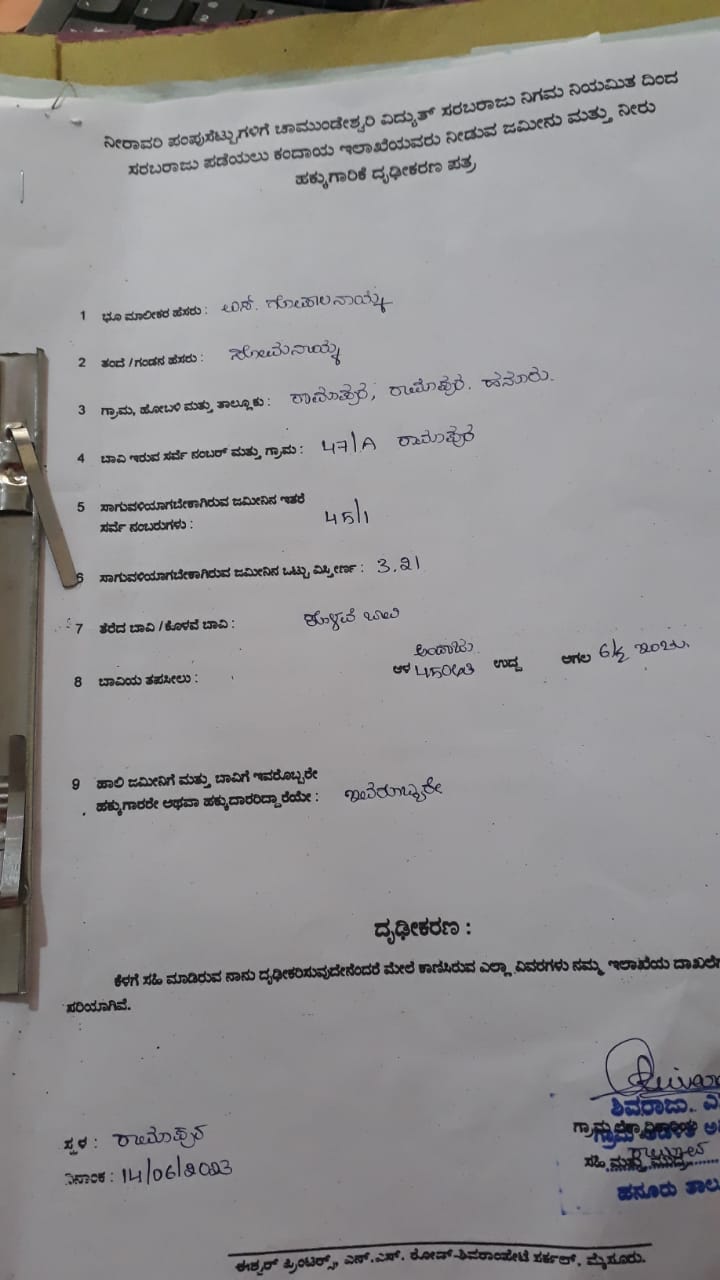 ನೀರಾವರಿ ಪಂಪುಸೆಟ್ಟುಗಳಿಗೆ ಚಾಮುಂಡೇಶ್ವರಿ ವಿದ್ಯುತ್ ಸರಬರಾಜು ನಿಗಮ ನಿಯಮಿತ ದಿಂದ
ಸರಬರಾಜು ಪಡೆಯಲು ಕಂದಾಯ ಇಲಾಖೆಯವರು ನೀಡುವ ಜಮೀನು ಮತ್ತು ನೀರು
ಹಕ್ಕುಗಾರಿಕೆ ದೃಢೀಕರಣ ಪತ್ರ
1 ಭೂ ಮಾಲೀಕರ ಹೆಸರು : ಎಸ್. ಗೋಪಾಲನಾಯ್ಕ
2 ತಂದೆ / ಗಂಡನ ಹೆಸರು : ಸೋಮನಾಯ್ಕ
3 ಗ್ರಾಮ, ಹೋಬಳಿ ಮತ್ತು ತಾಲ್ಲೂಕು : ರಾಮಾಪುರ, ರಾಮಾಪುರ. ಹನೂರು.
4 ಬಾವಿ ಇರುವ ಸರ್ವೆ ನಂಬರ್ ಮತ್ತು ಗ್ರಾಮ : 47/A ರಾಮಾಪುರ
5 ಸಾಗುವಳಿಯಾಗಬೇಕಾಗಿರುವ ಜಮೀನಿನ ಇತರೆ
ಸರ್ವೆ ನಂಬರುಗಳು : 45/1
6 ಸಾಗುವಳಿಯಾಗಬೇಕಾಗಿರುವ ಜಮೀನಿನ ಒಟ್ಟು ವಿಸ್ತೀರ್ಣ : 3.21
7 ತೆರೆದ ಬಾವಿ / ಕೊಳವೆ ಬಾವಿ : ಕೊಳವೆ ಬಾವಿ
ಅಂದಾಜು
8 ಬಾವಿಯ ತಪಸೀಲು : ಆಳ 450ಅಡಿ ಉದ್ದ ಅಗಲ 6½ ಇಂಚು.
9 ಹಾಲಿ ಜಮೀನಿಗೆ ಮತ್ತು ಬಾವಿಗೆ ಇವರೊಬ್ಬರೇ
ಹಕ್ಕುಗಾರರೇ ಅಥವಾ ಹಕ್ಕುದಾರರಿದ್ದಾರೆಯೇ : ಇವರೊಬ್ಬರೇ
ದೃಢೀಕರಣ :
ಕೆಳಗೆ ಸಹಿ ಮಾಡಿರುವ ನಾನು ದೃಢೀಕರಿಸುವುದೇನೆಂದರೆ ಮೇಲೆ ಕಾಣಿಸಿರುವ ಎಲ್ಲಾ ವಿವರಗಳು ನಮ್ಮ ಇಲಾಖೆಯ
ಸರಿಯಾಗಿವೆ.
ಶಿವರಾಜು.
ಸ್ಥಳ : ರಾಮಾಪುರ
ದಿನಾಂಕ : 14/06/2023
ಸಹಿ ಮತ್ತು
ಹನೂರು
ಈಶ್ವರ್ ಪ್ರಿಂಟರ್ಸ್, ಎನ್.ಎಸ್. ರೋಡ್-ಶಿವರಾಂಪೇಟೆ ಸರ್ಕಲ್, ಮೈಸೂರು.